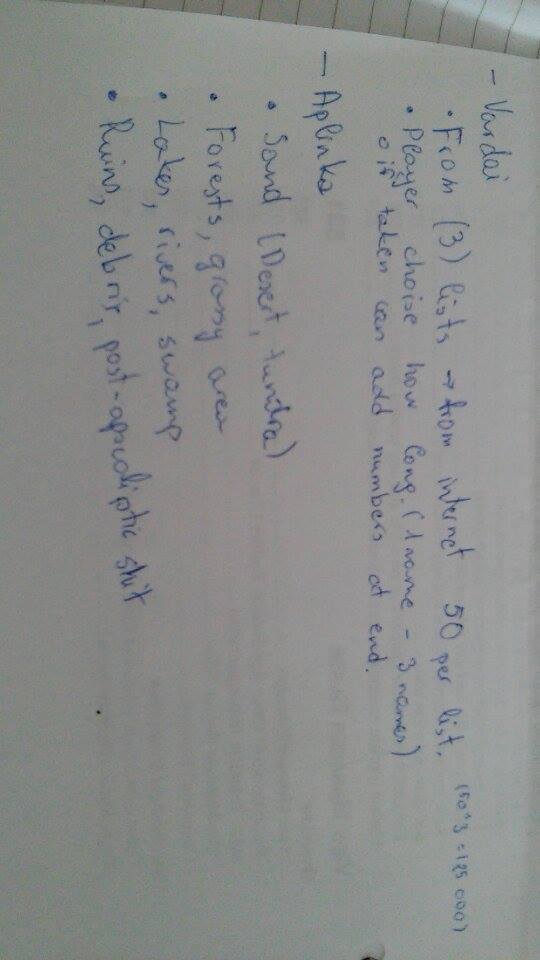 - Vardai
• From (3) lists → from internet 50 per list. (50^3 = 125 000)
• Player choise how long. (1 name - 3 names)
o if taken can add numbers at end.
- Aplinka
• Sand (Desert, tundra)
• Forests, grassy area
• Lakes, rivers, swamp
• Ruins, debris, post-apocaliptic shit